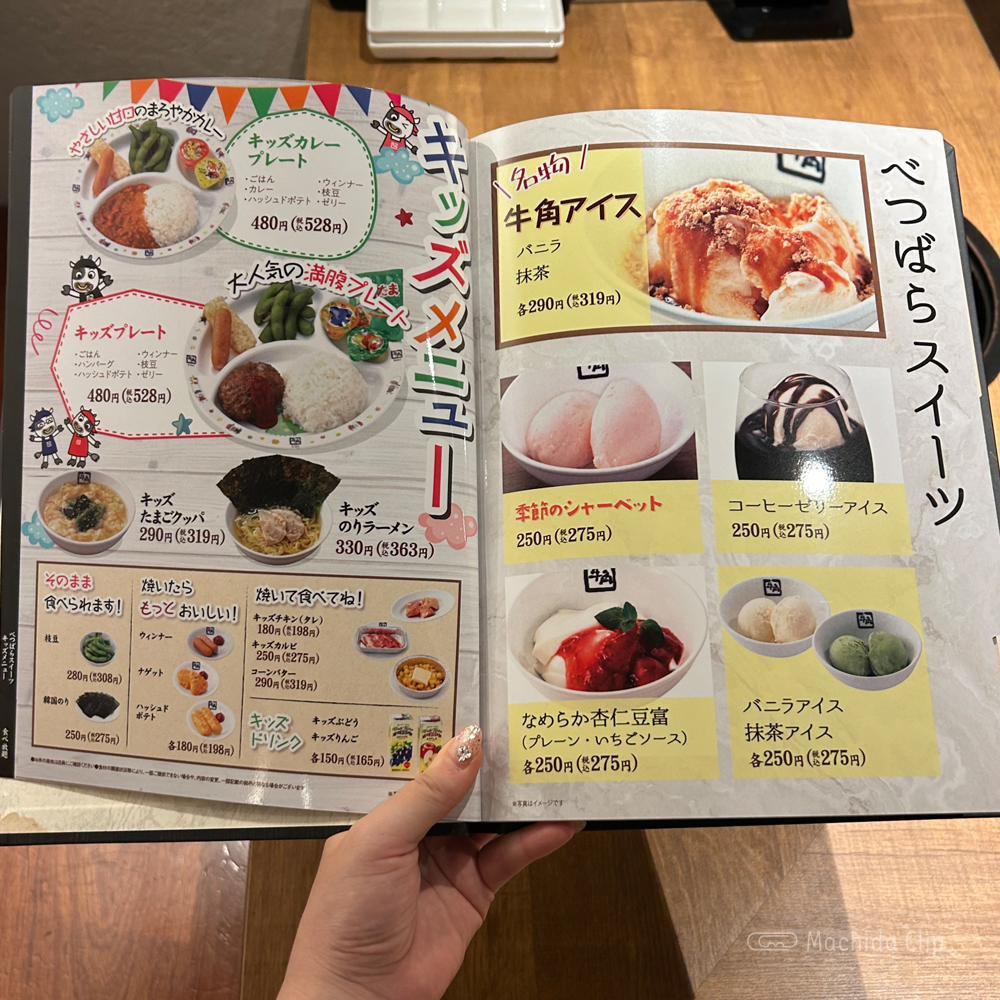 キッズメニュー
やさしい甘口のまろやかカレー
キッズカレー
プレート
・ごはん ・ウィンナー
・カレー ・枝豆
・ハッシュドポテト ・ゼリー
480円(税込528円)
大人気の満腹プレート
キッズプレート
・ごはん ・ウィンナー
・ハンバーグ ・枝豆
・ハッシュドポテト ・ゼリー
480円(税込528円)
キッズ
たまごクッパ
290円(税込319円)
キッズ
のりラーメン
330円(税込363円)
そのまま
食べられます!
枝豆
280円(税込308円)
韓国のり
250円(税込275円)
焼いたら
もっとおいしい!
ウィンナー
ナゲット
ハッシュド
ポテト
各180円(税込198円)
焼いて食べてね!
キッズチキン(タレ)
180円(税込198円)
キッズカルビ
250円(税込275円)
コーンバター
290円(税込319円)
キッズ
ドリンク
キッズぶどう
キッズりんご
各150円(税込165円)
べつばらスイーツ
キッズメニュー
食べ放題
べつばらスイーツ
名物
牛角アイス
バニラ
抹茶
各290円(税込319円)
季節のシャーベット
250円(税込275円)
コーヒーゼリーアイス
250円(税込275円)
牛角
なめらか杏仁豆富
(プレーン・いちごソース)
各250円(税込275円)
バニラアイス
抹茶アイス
各250円(税込275円)
※写真はイメージです
Machida Clip